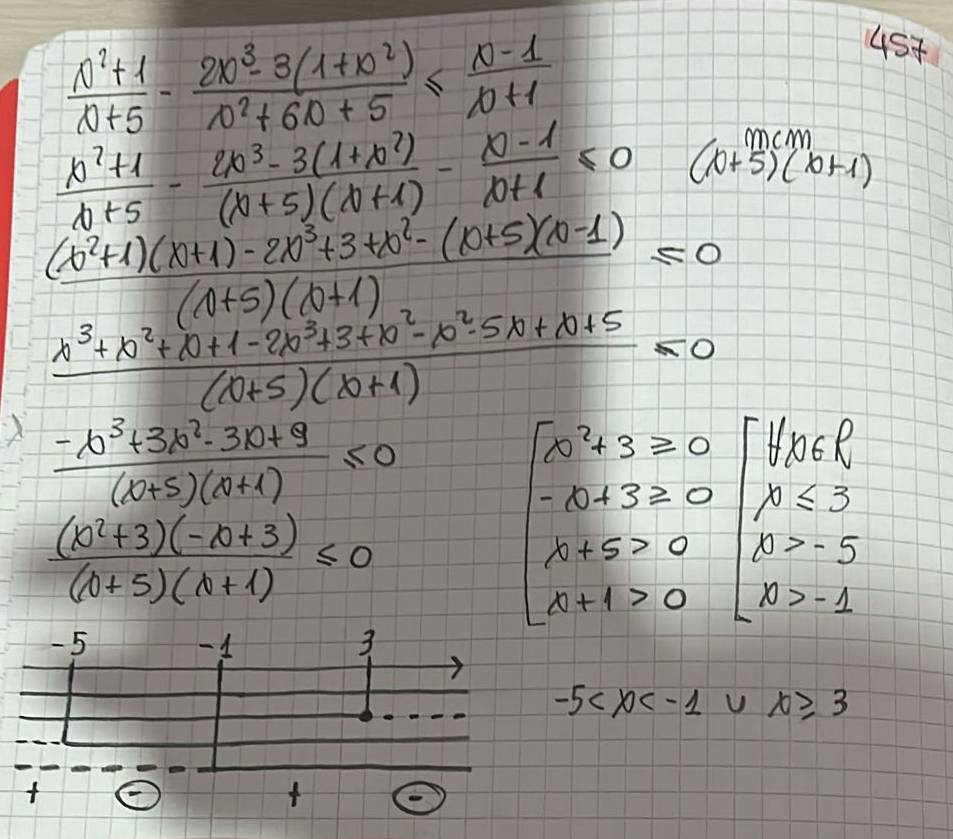 457
(x²+1)/(x+5) - (2x³-3(1+x²))/(x²+6x+5) ≤ (x-1)/(x+1)
(x²+1)/(x+5) - (2x³-3(1+x²))/((x+5)(x+1)) - (x-1)/(x+1) ≤ 0 mcm (x+5)(x+1)
((x²+1)(x+1)-2x³+3+x²-(x+5)(x-1))/((x+5)(x+1)) ≤ 0
(x³+x²+x+1-2x³+3+x²-x²-5x+x+5)/((x+5)(x+1)) ≤ 0
(-x³+3x²-3x+9)/((x+5)(x+1)) ≤ 0
((x²+3)(-x+3))/((x+5)(x+1)) ≤ 0
[x²+3 ≥ 0 [∀x∈R
-x+3 ≥ 0 x ≤ 3
x+5 > 0 x > -5
x+1 > 0 x > -1
-5 -1 3
+ - + -
-5 < x < -1 ∪ x ≥ 3